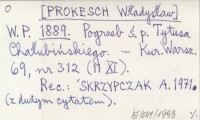 [PROKESCH Władysław]
W. P. 1889. Pogrzeb ś.p. Tytusa
Chałubińskiego. – Kur. Warsz.
69, nr 312 (11 XI).
Rec.: SKRZYPCZAK A. 1971.
(z dużym cytatem).